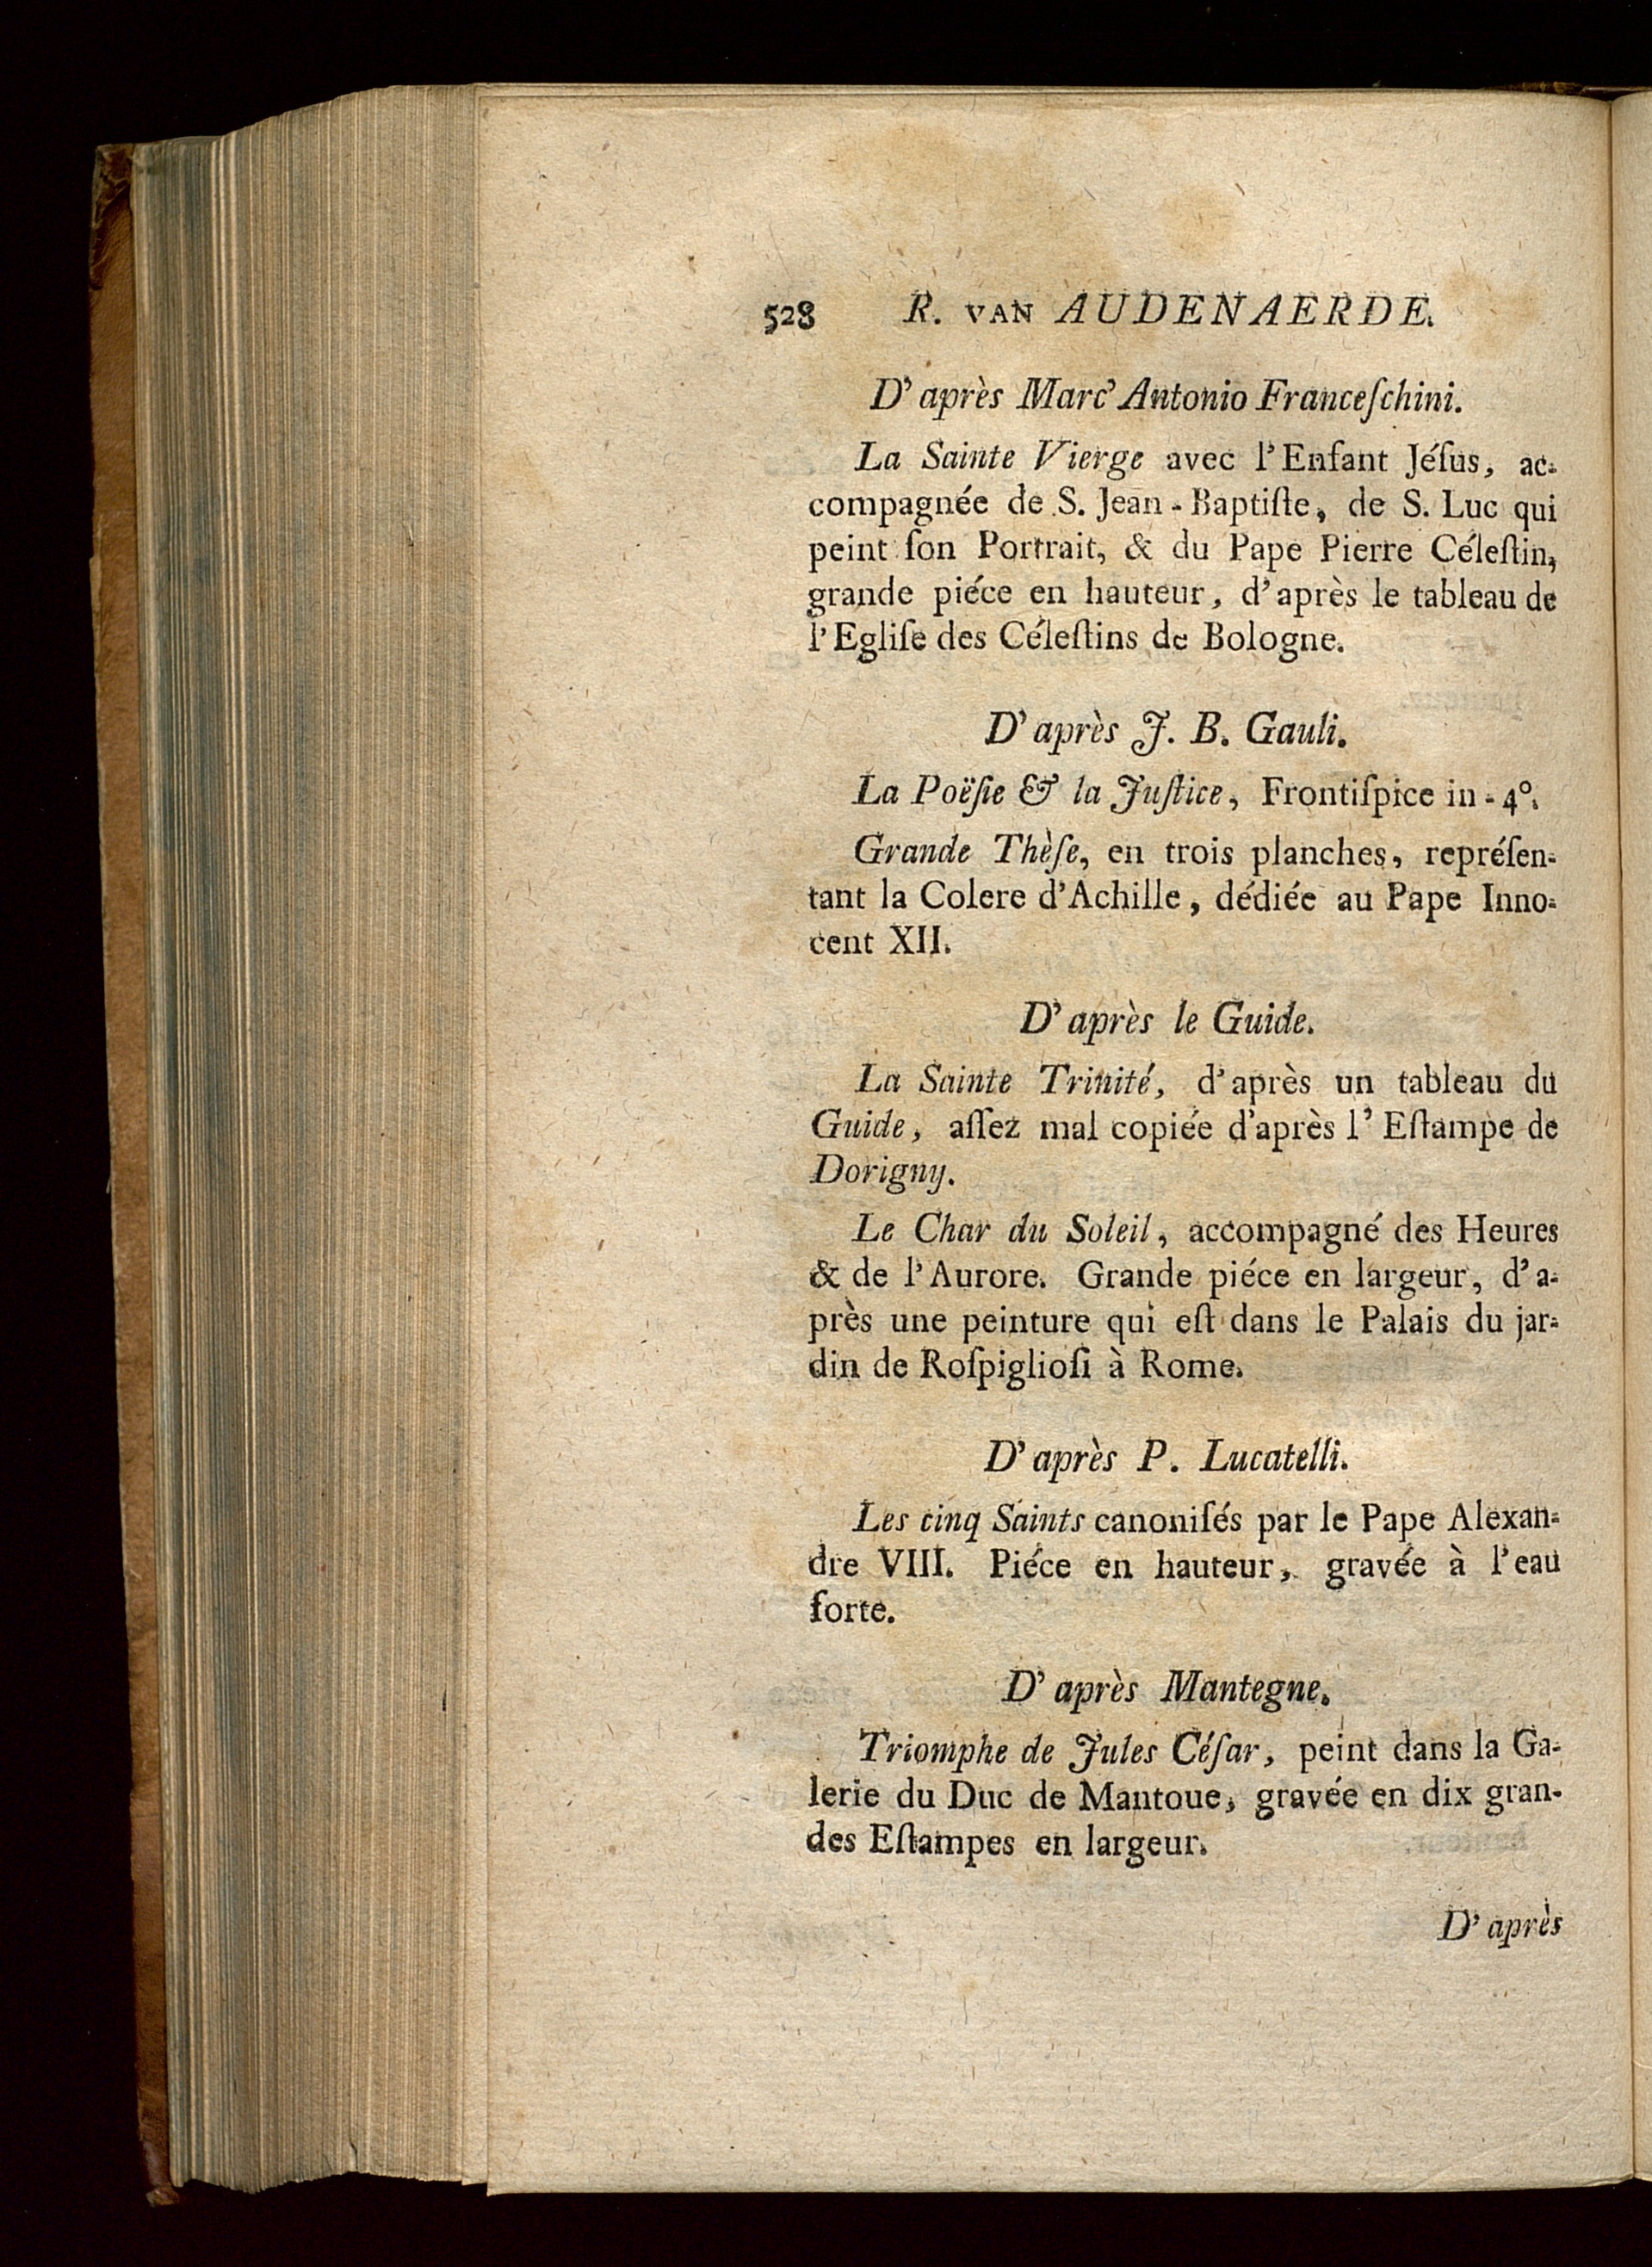 528 R. VAN AUDENAERDE.
D' après Marc' Antonio Franceſchini.
La Sainte Vierge avec l'Enfant Jéſus, ac-
compagnée de S. Jean-Baptiſte, de S. Luc qui
peint ſon Portrait, & du Pape Pierre Céleſtin,
grande piéce en hauteur, d'après le tableau de
l'Egliſe des Céleſtins de Bologne.
D' après J. B. Gauli.
La Poëſie & la Juſtice, Frontiſpice in-4°.
Grande Thèſe, en trois planches, repréſen-
tant la Colere d'Achille, dédiée au Pape Inno-
cent XII.
D' après le Guide.
La Sainte Trinité, d'après un tableau du
Guide, aſſez mal copiée d'après l'Eſtampe de
Dorigny.
Le Char du Soleil, accompagné des Heures
& de l'Aurore. Grande piéce en largeur, d'a-
près une peinture qui eſt dans le Palais du jar-
din de Roſpiglioſi à Rome.
D' après P. Lucatelli.
Les cinq Saints canoniſés par le Pape Alexan-
dre VIII. Piéce en hauteur, gravée à l'eau
forte.
D' après Mantegne.
Triomphe de Jules Céſar, peint dans la Ga-
lerie du Duc de Mantoue, gravée en dix gran-
des Eſtampes en largeur.
D' après